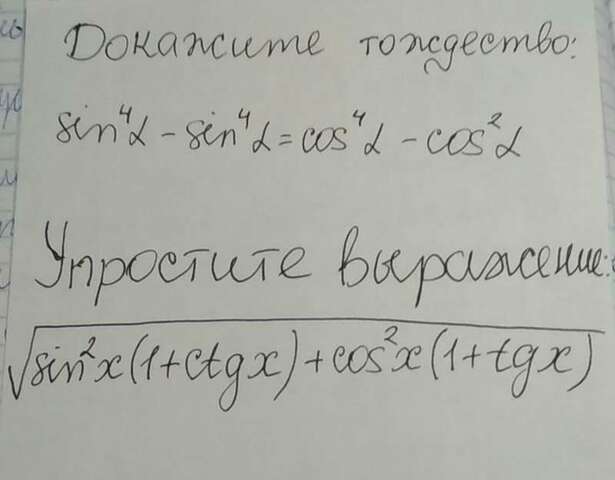 Докажите тождество:
sin⁴α - sin⁴α = cos⁴α - cos²α
Упростите выражение:
√(sin²x(1+ctgx)+cos²x(1+tgx))